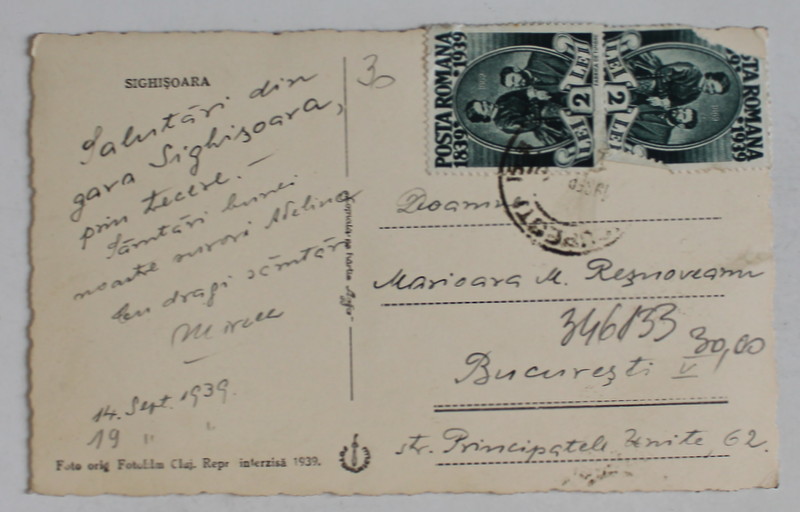 SIGHIȘOARA
Salutări din
gara Sighișoara,
prin trecere. —
Sărutări bunei
noastre surori Adelina
Cu dragi sărutări
Mircea
14. Sept. 1939.
19 " "
Foto orig Fotofilm Cluj. Repr interzisă 1939.
30
POSTA ROMANA
1839 1939
LEI 2 LEI
LEI 2 LEI
TA ROMANA
1939
Doamnei
Marioara M. Reznoveanu
346133
30,00
București V
str. Principatele Unite, 62.